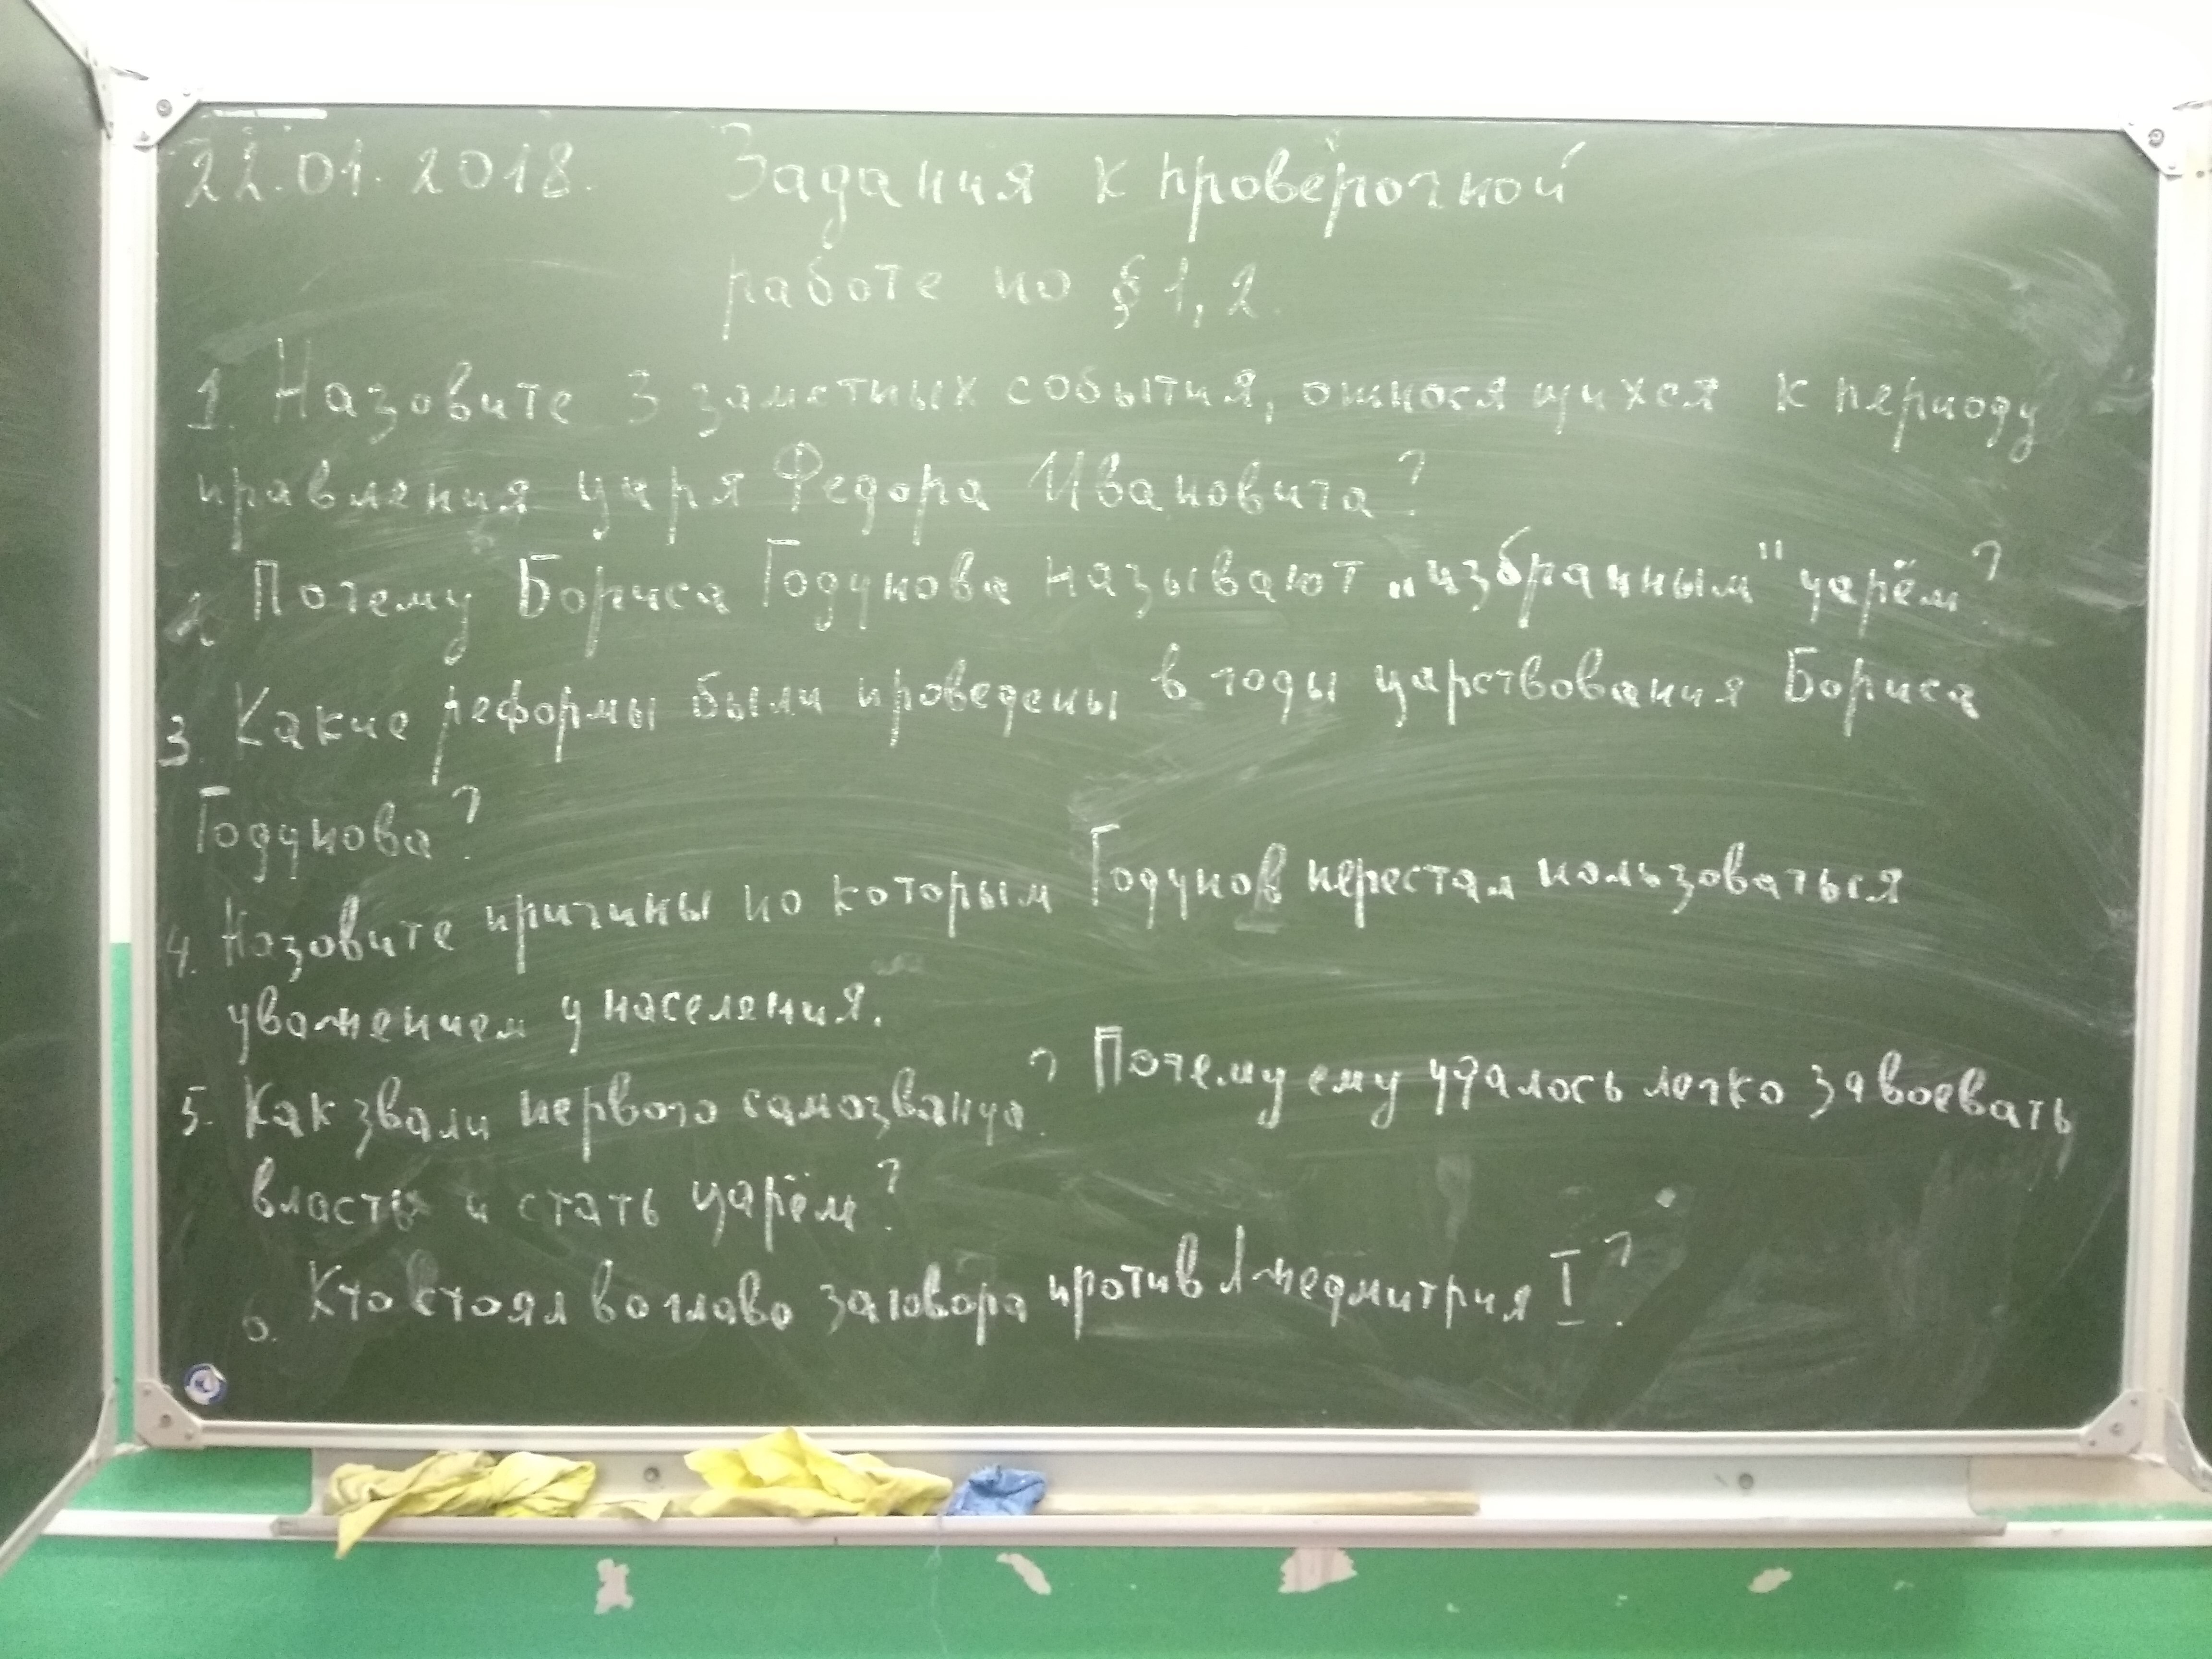 22.01.2018. Задания к проверочной
работе по § 1, 2.
1. Назовите 3 заметных события, относящихся к периоду
правления царя Федора Ивановича?
2 Почему Бориса Годунова называют „избранным" царём?
3. Какие реформы были проведены в годы царствования Бориса
Годунова?
4. Назовите причины по которым Годунов перестал пользоваться
уважением у населения.
5. Как звали первого самозванца? Почему ему удалось легко завоевать
власть и стать царём?
6. Кто стоял во главе заговора против Лжедмитрия I?